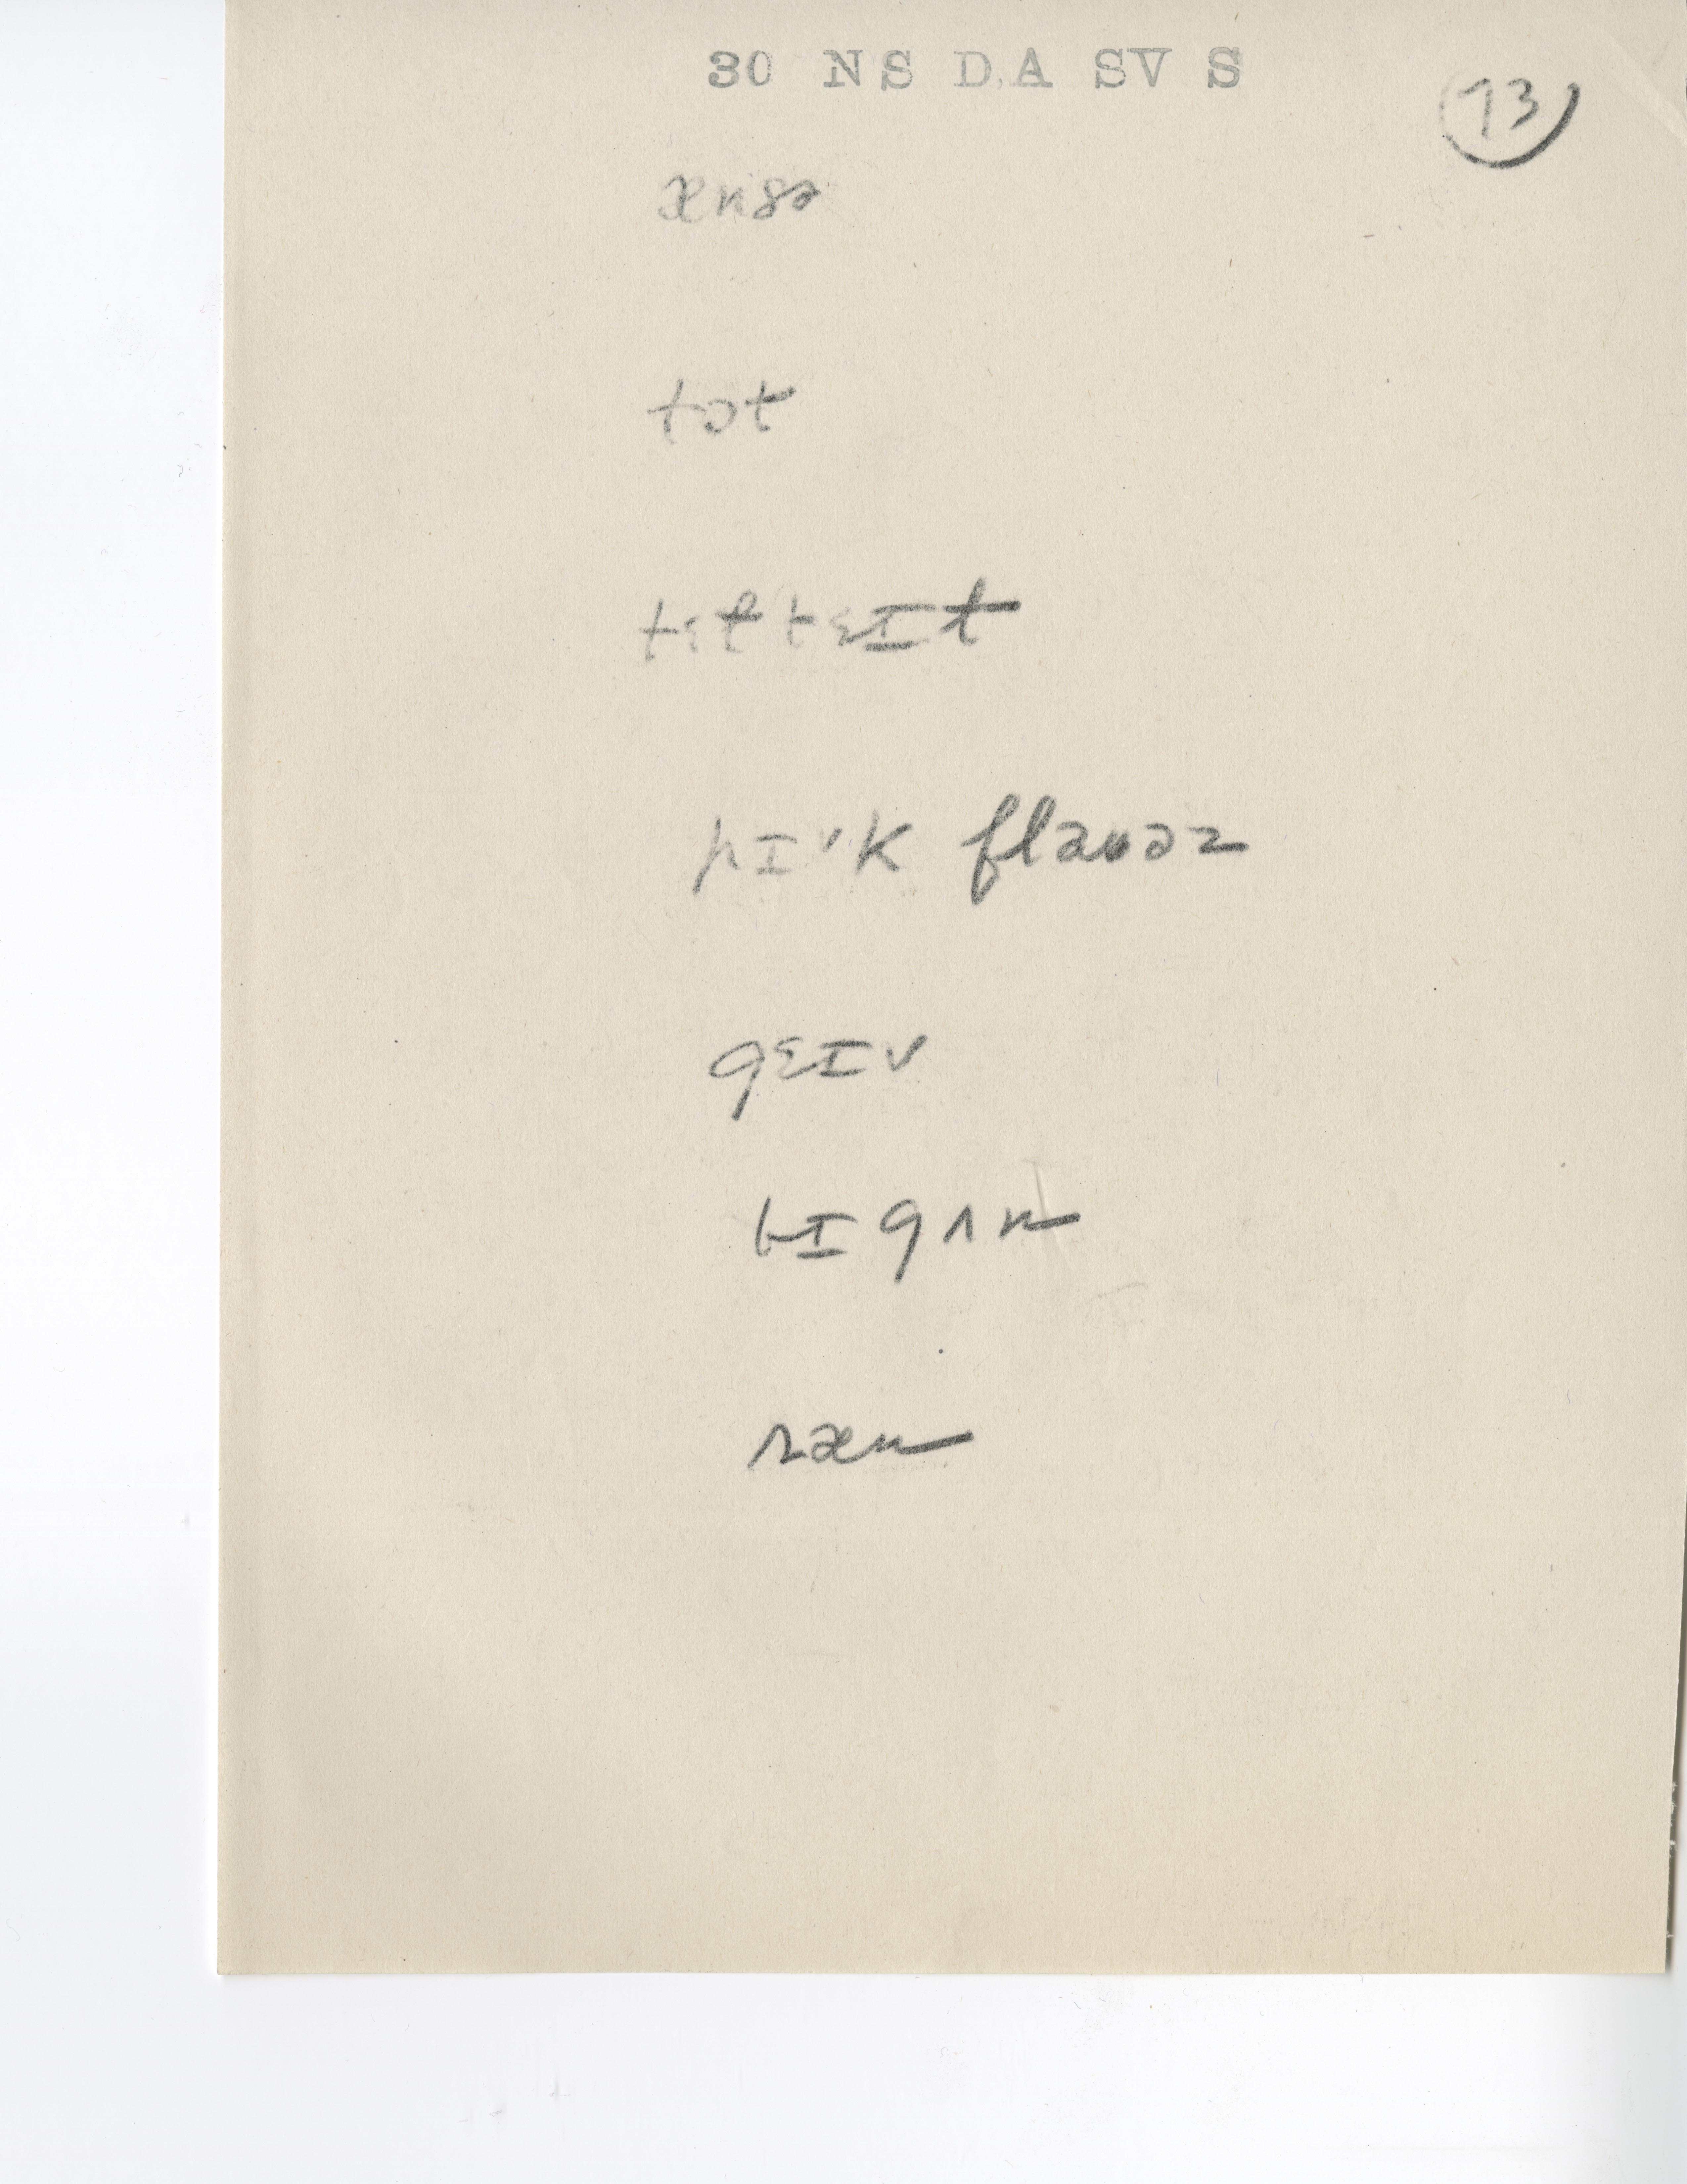 30 NS D.A SV S
73
ænsə
tɔt
tɛt tɛɪt
pɪ'k flauəz
gɛɪv
bɪgʌn
ræn